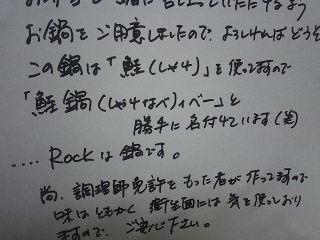 お鍋をご用意しましたので、よろしければどうぞ
この鍋は「鮭(しゃけ)」を使ってますので
「鮭鍋(しゃけなべ)ィベー」と
勝手に名付けています(笑)
....Rockは鍋です。
尚、調理師免許をもった者が作ってますので
味はともかく衛生面には気を使っており
ますので、ご安心下さい。